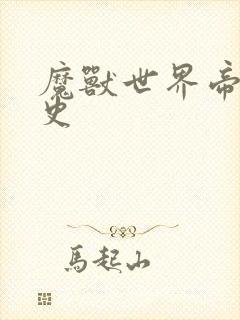 魔獸世界帝
史
馬起山